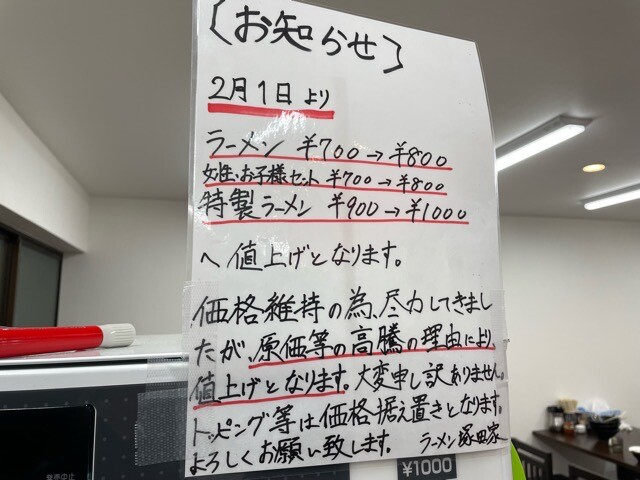 〔お知らせ〕
2月1日より
ラーメン ¥700→¥800
女性・お子様セット ¥700→¥800
特製ラーメン ¥900→¥1000
へ値上げとなります。
価格維持の為、尽力してきまし
たが、原価等の高騰の理由により、
値上げとなります。大変申し訳ありません。
トッピング等は価格据え置きとなります。
よろしくお願い致します。 ラーメン塚田家
¥1000
発売中止